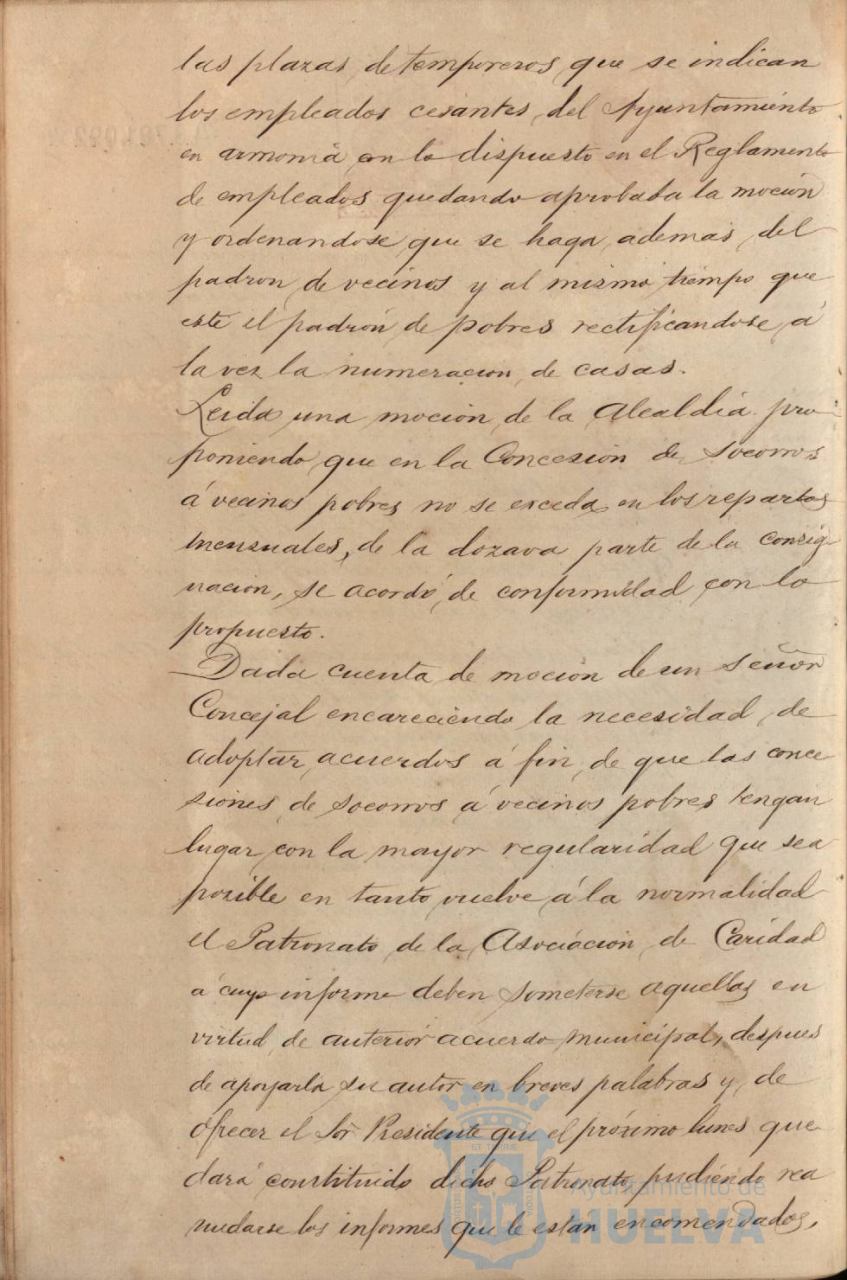 las plazas de temporeros que se indican
los empleados cesantes del Ayuntamiento
en armonia con lo dispuesto en el Reglamento
de empleados quedando aprobada la moción
y ordenandose que se haga ademas del
padron de vecinos y al mismo tiempo que
este el padrón de pobres rectificandose á
la vez la numeracion de casas.
Leida una moción de la Alcaldia pro
poniendo que en la Concesión de Socorros
á vecinos pobres no se exceda en los repartos
mensuales, de la dozava parte de la consig
nacion, se acordó de conformidad con lo
propuesto.
Dada cuenta de moción de un Señor
Concejal encareciendo la necesidad de
adoptar acuerdos á fin de que las conce
siones de socorros á vecinos pobres tengan
lugar con la mayor regularidad que sea
posible en tanto vuelve á la normalidad
el Patronato de la Asociación de Caridad
á cuyo informe deben someterse aquellas en
virtud de anterior acuerdo municipal, despues
de apoyarla su autor en breves palabras y de
ofrecer el Sor Presidente que el próximo lunes que
dará constituido dicho Patronato pudiendo rea
nudarse los informes que le estan encomendados,
Ayuntamiento de
HUELVA